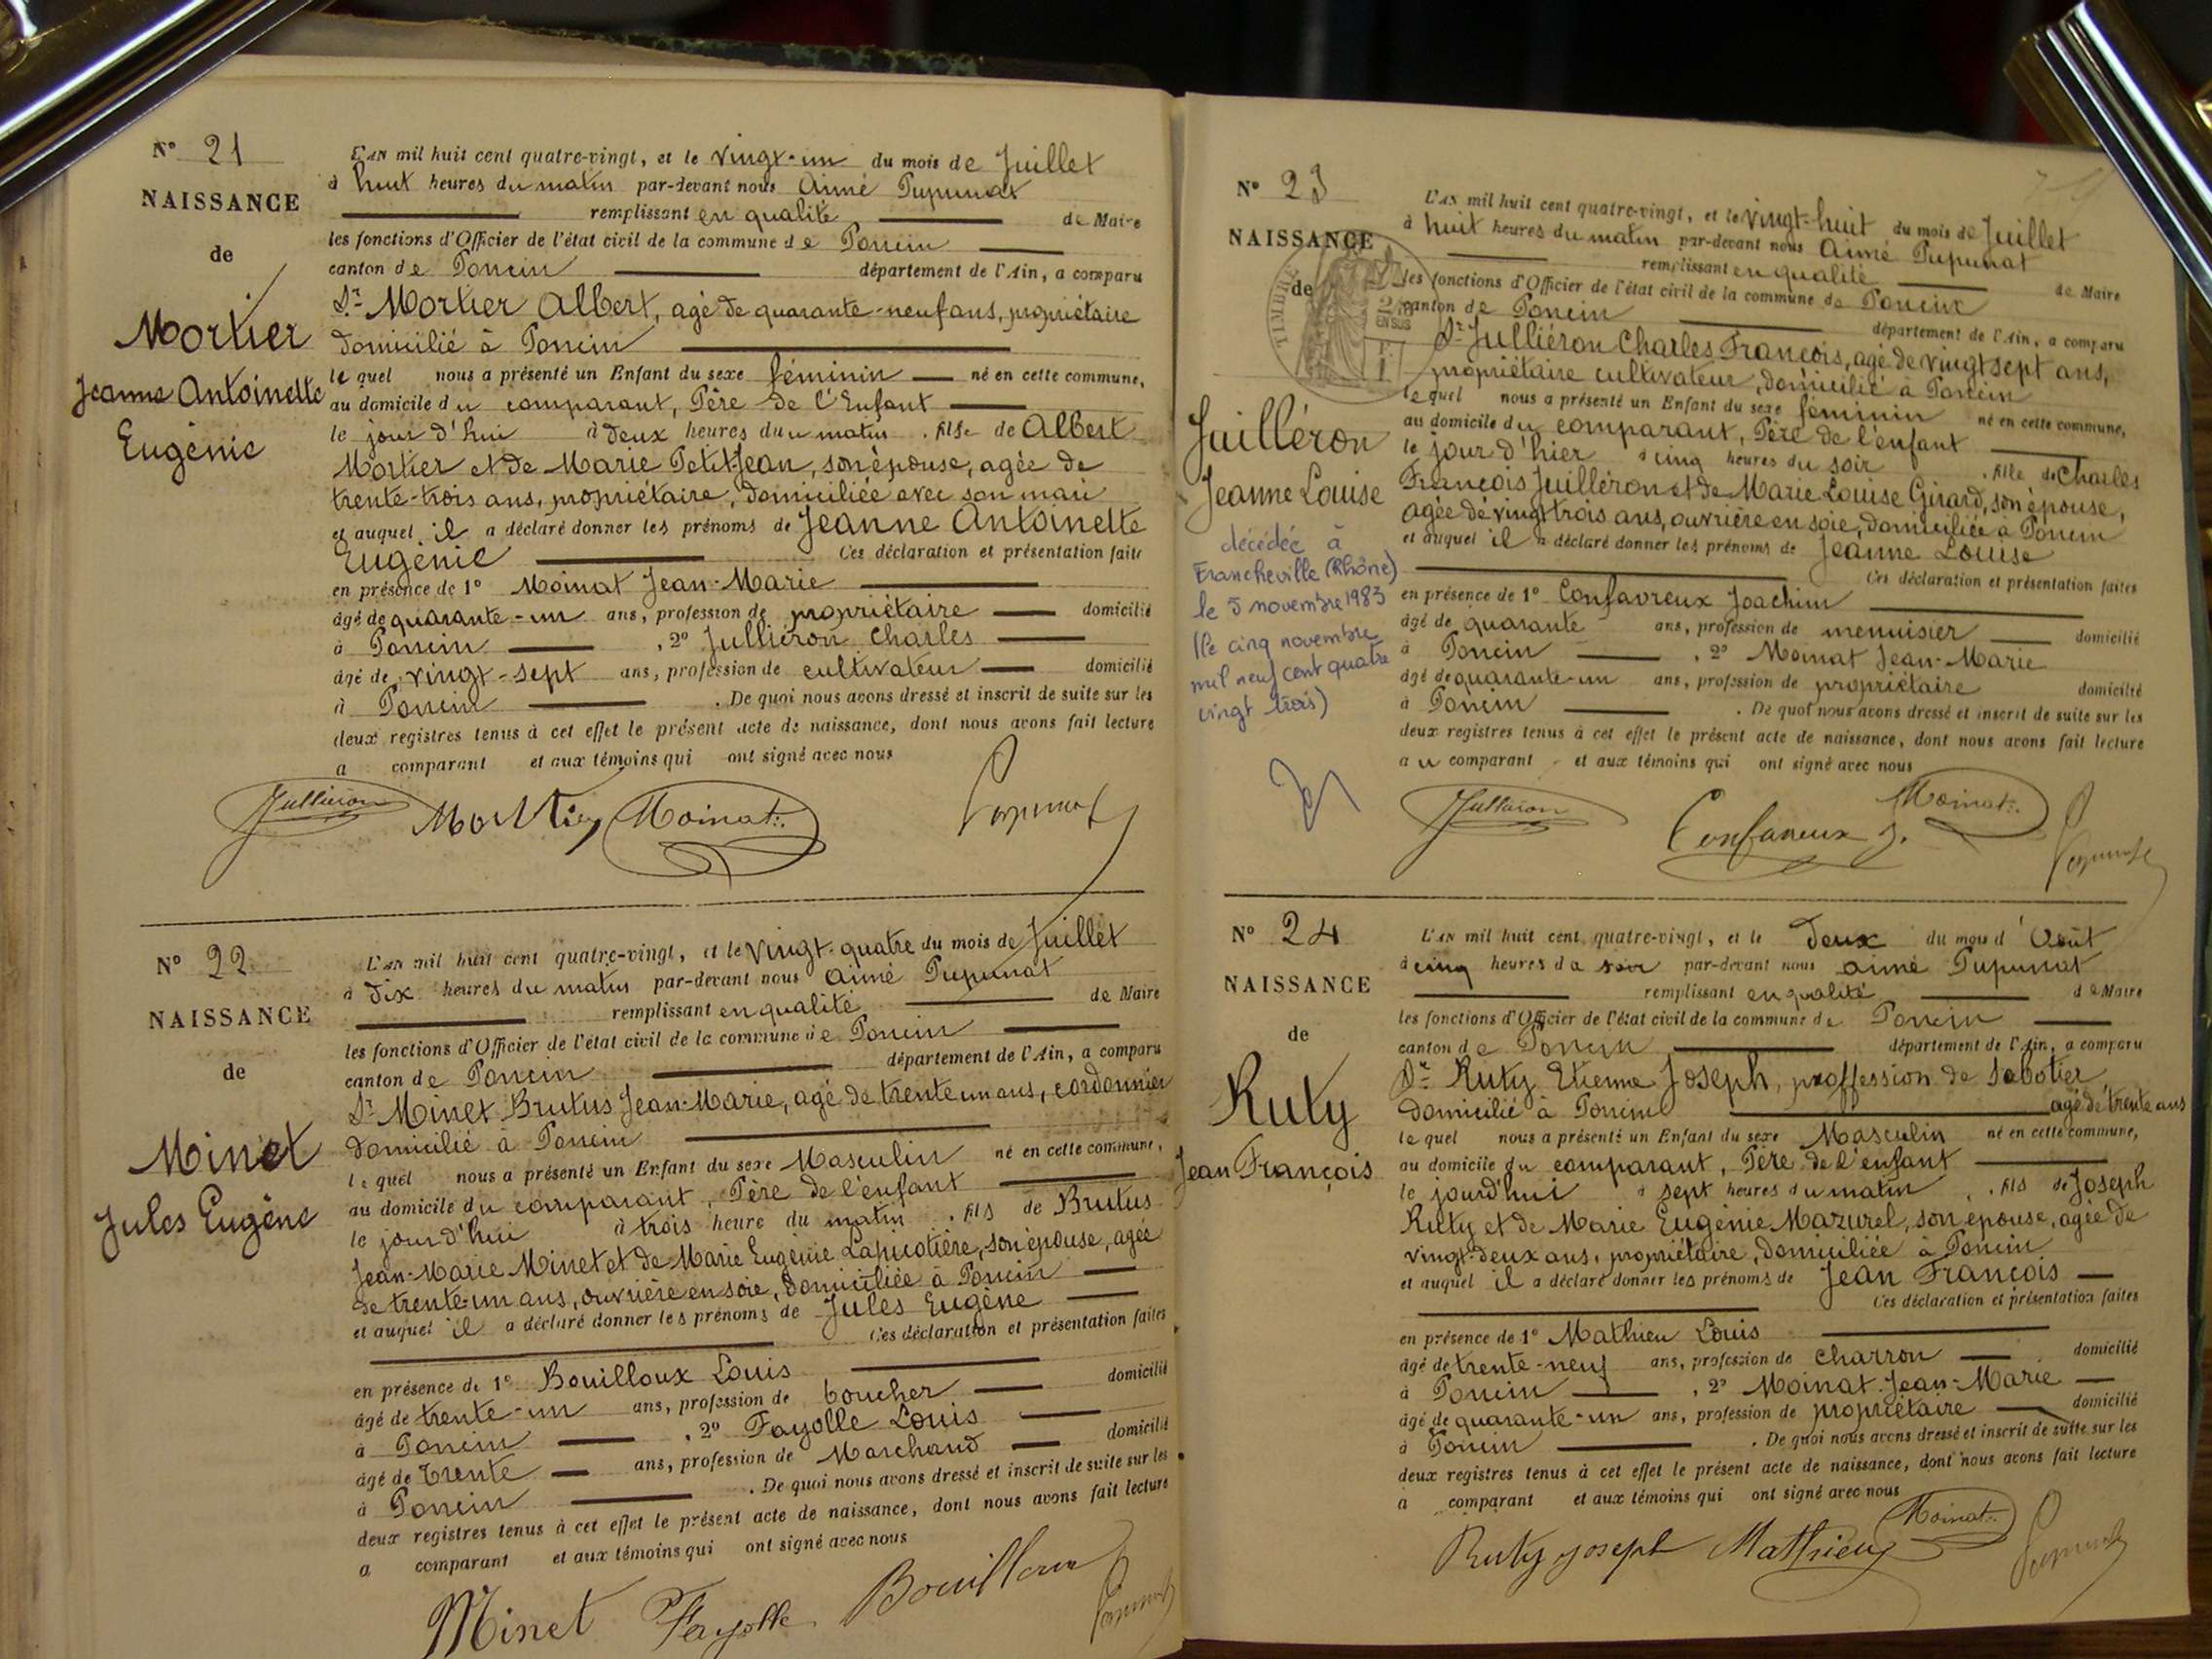 N° 21
NAISSANCE
de
Mortier
Jeanne Antoinette
Eugénie
L'AN mil huit cent quatre-vingt, et le vingt-un du mois de Juillet
à huit heures du matin par-devant nous Aimé Pupunat
remplissant en qualité de Maire
les fonctions d'Officier de l'état civil de la commune de Poncin
canton de Poncin département de l'Ain, a comparu
Sr Mortier Albert, agé de quarante-neuf ans, propriétaire
domicilié à Poncin
lequel nous a présenté un Enfant du sexe féminin né en cette commune,
au domicile du comparant, Père de l'Enfant
le jour d'hui à deux heures du matin, fille de Albert
Mortier et de Marie Petit-Jean, son épouse, agée de
trente-trois ans, propriétaire, domiciliée avec son mari
et auquel il a déclaré donner les prénoms de Jeanne Antoinette
Eugénie Ces déclaration et présentation faite
en présence de 1° Moinat Jean-Marie
âgé de quarante-un ans, profession de propriétaire domicilié
à Poncin , 2° Julliéron Charles
âgé de vingt-sept ans, profession de cultivateur domicilié
à Poncin . De quoi nous avons dressé et inscrit de suite sur les
deux registres tenus à cet effet le présent acte de naissance, dont nous avons fait lecture
a comparant et aux témoins qui ont signé avec nous
Julliéron Mortier Moinat Pupunat
N° 22
NAISSANCE
de
Minet
Jules Eugène
L'AN mil huit cent quatre-vingt, et le vingt-quatre du mois de Juillet
à dix heures du matin par-devant nous Aimé Pupunat
remplissant en qualité de Maire
les fonctions d'Officier de l'état civil de la commune de Poncin
canton de Poncin département de l'Ain, a comparu
Sr Minet Brutus Jean-Marie, agé de trente un ans, cordonnier
domicilié à Poncin
lequel nous a présenté un Enfant du sexe Masculin né en cette commune,
au domicile du comparant, Père de l'enfant
le jour d'hui à trois heure du matin, fils de Brutus
Jean-Marie Minet et de Marie Eugénie Lapicotière, son épouse, agée
de trente-un ans, ouvrière en soie, domiciliée à Poncin
et auquel il a déclaré donner les prénoms de Jules Eugène
Ces déclaration et présentation faites
en présence de 1° Bouilloux Louis
âgé de trente-un ans, profession de boucher domicilié
à Poncin , 2° Fayolle Louis
âgé de trente ans, profession de Marchand domicilié
à Poncin . De quoi nous avons dressé et inscrit de suite sur les
deux registres tenus à cet effet le présent acte de naissance, dont nous avons fait lecture
a comparant et aux témoins qui ont signé avec nous
Minet Fayolle Bouilloux Pupunat
N° 23
NAISSANCE
de
TIMBRE
Juilléron
Jeanne Louise
décédée à
Francheville (Rhône)
le 5 novembre 1983
(le cinq novembre
mil neuf cent quatre
vingt trois)
L'AN mil huit cent quatre-vingt, et le vingt-huit du mois de Juillet
à huit heures du matin par-devant nous Aimé Pupunat
remplissant en qualité de Maire
les fonctions d'Officier de l'état civil de la commune de Poncin
canton de Poncin département de l'Ain, a comparu
Sr Julliéron Charles François, agé de vingt sept ans,
propriétaire cultivateur, domicilié à Poncin
lequel nous a présenté un Enfant du sexe féminin né en cette commune,
au domicile du comparant, Père de l'enfant
le jour d'hier à cinq heures du soir, fille de Charles
François Juilléron et de Marie Louise Girard, son épouse,
agée de vingt trois ans, ouvrière en soie, domiciliée à Poncin
et auquel il a déclaré donner les prénoms de Jeanne Louise
Ces déclaration et présentation faites
en présence de 1° Confavreux Joachim
âgé de quarante ans, profession de menuisier domicilié
à Poncin , 2° Moinat Jean-Marie
âgé de quarante-un ans, profession de propriétaire domicilié
à Poncin . De quoi nous avons dressé et inscrit de suite sur les
deux registres tenus à cet effet le présent acte de naissance, dont nous avons fait lecture
au comparant et aux témoins qui ont signé avec nous
Julliéron Confavreux J. Moinat Pupunat
N° 24
NAISSANCE
de
Ruty
Jean François
L'AN mil huit cent quatre-vingt, et le deux du mois d'Août
à cinq heures du soir par-devant nous aimé Pupunat
remplissant en qualité de Maire
les fonctions d'Officier de l'état civil de la commune de Poncin
canton de Poncin département de l'Ain, a comparu
Sr Ruty Etienne Joseph, proffession de Sabotier,
domicilié à Poncin agé de trente ans
lequel nous a présenté un Enfant du sexe Masculin né en cette commune,
au domicile du comparant, Père de l'enfant
le jourd'hui à sept heures du matin, fils de Joseph
Ruty et de Marie Eugénie Mazurel, son épouse, agée de
vingt-deux ans, propriétaire, domiciliée à Poncin
et auquel il a déclaré donner les prénoms de Jean François
Ces déclaration et présentation faites
en présence de 1° Mathieu Louis
âgé de trente-neuf ans, profession de charron domicilié
à Poncin , 2° Moinat Jean-Marie
âgé de quarante-un ans, profession de propriétaire domicilié
à Poncin . De quoi nous avons dressé et inscrit de suite sur les
deux registres tenus à cet effet le présent acte de naissance, dont nous avons fait lecture
a comparant et aux témoins qui ont signé avec nous
Ruty joseph Mathieu Moinat Pupunat